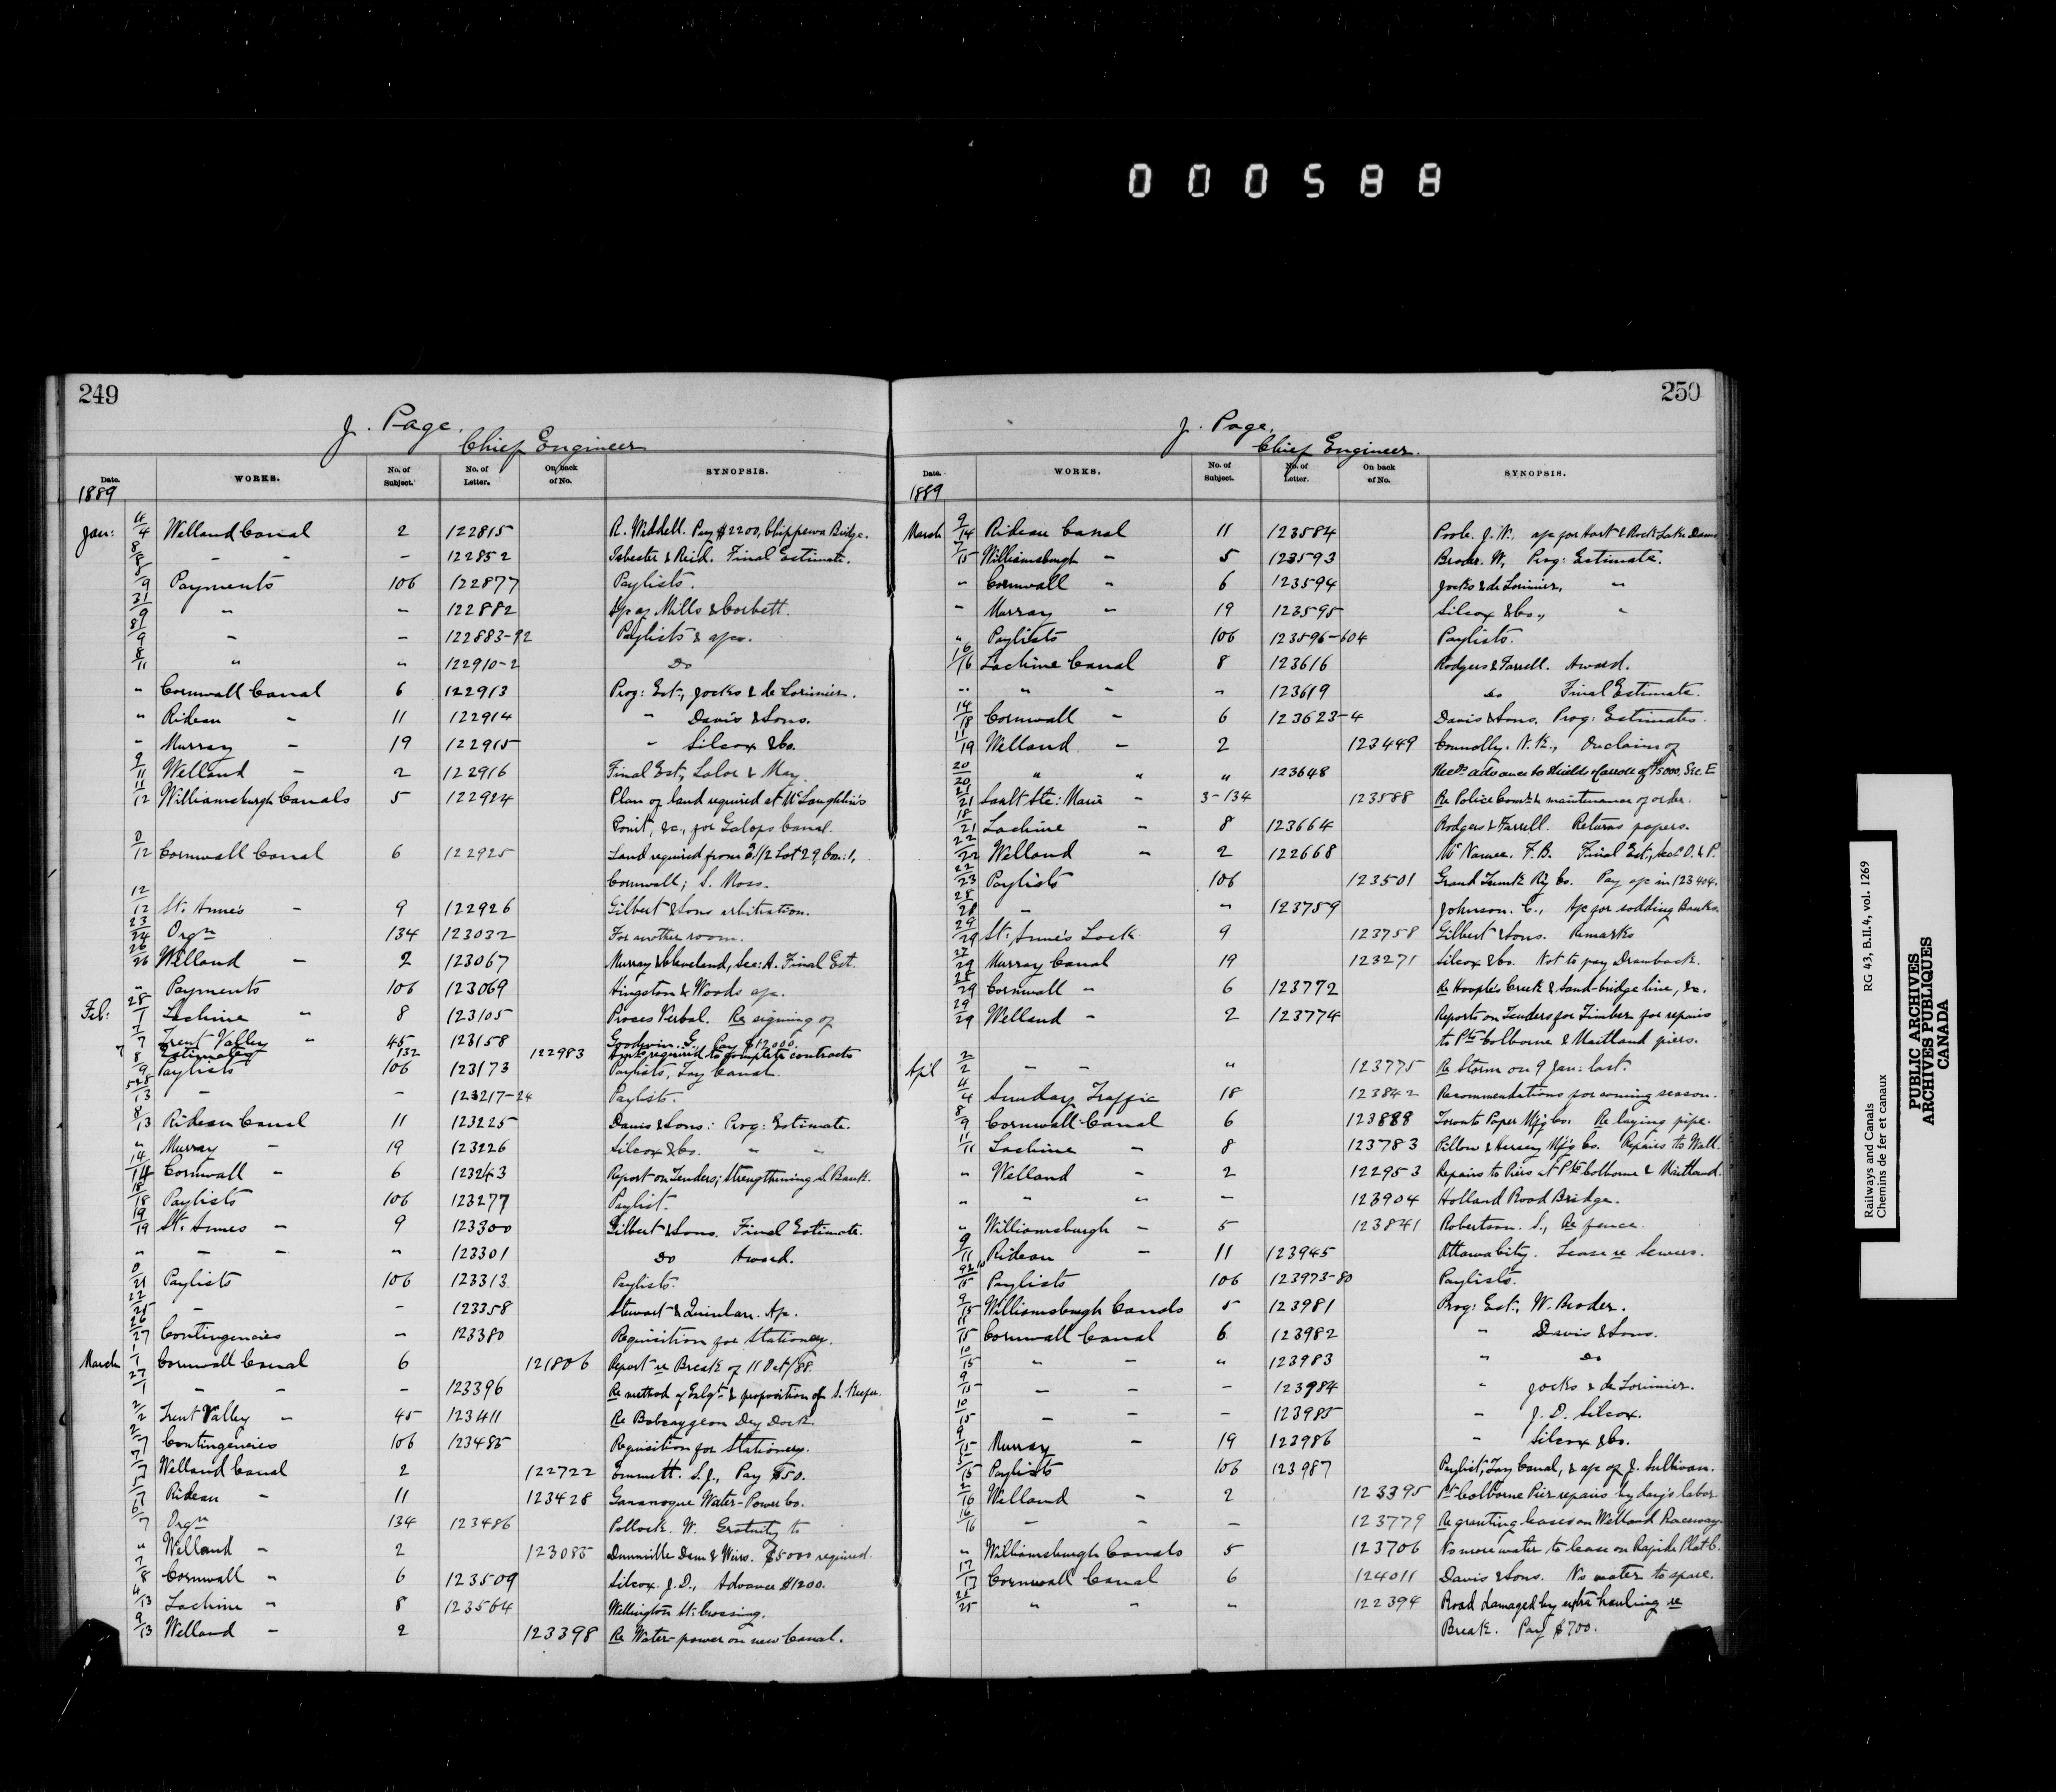 000588
249
J. Page,
Chief Engineer
Date. WORKS. No. of Subject. No. of Letter. On back of No. SYNOPSIS.
1889
Jan: 4/4 Welland Canal 2 122815 R. Widdell. Pay $2200, Chippewa Bridge.
8/8 " " " 122852 Isbester & Reid. Final Estimate.
9 Payments 106 122877 Paylists.
31/9 " " 122882 A/c of Mills & Corbett.
" " 122883-92 Paylists & a/cs.
8/11 " " 122910-2 Do
" Cornwall Canal 6 122913 Prog: Est., Jocks & de Lorimier.
" Rideau " 11 122914 " Davis & Sons.
" Murray " 19 122915 " Silcox & Co.
9/11 Welland " 2 122916 Final Est, Lalor & May.
11/12 Williamsburgh Canals 5 122924 Plan of land required at McLaughlin's
Point, &c., for Galops Canal.
8/12 Cornwall Canal 6 122925 Land required from E1/2 Lot 29, Con: 1,
Cornwall; S. Moss.
12/12 St. Anne's " 9 122926 Gilbert & Sons arbitration.
23/24 Orgn 134 123032 For another room.
26/26 Welland " 2 123067 Murray & Cleveland, Sec: A. Final Est.
" Payments 106 123069 Hingston & Woods a/c.
Feb: 28/1 Lachine " 8 123105 Proces Verbal. Re signing of
7/7 Trent Valley " 45 123158 Goodwin. G., Pay $12000.
7 Estimates 132 122983 Amts required to complete contracts
8/9 Paylists 106 123173 Paylists, Tay Canal.
5&8/13 " " 123217-24 Paylist.
8/13 Rideau Canal 11 123225 Davis & Sons: Prog: Estimate.
" Murray " 19 123226 Silcox & Co. " "
14/14 Cornwall " 6 123243 Report on Tenders; Strengthening S. Bank.
18/18 Paylists 106 123277 Paylist.
19/19 St. Annes " 9 123300 Gilbert & Sons. Final Estimate.
" " " " 123301 Do Award.
8/21 Paylists 106 123313 Paylists.
22/25 " " 123358 Stewart & Quinlan. A/c.
26/27 Contingencies " 123380 Requisition for Stationery.
March 1/1 Cornwall Canal 6 121806 Report re Break of 11 Oct/88.
27/1 " " " 123396 Re method of Enlgt & proposition of S. Keefer.
2/2 Trent Valley " 45 123411 Re Bobcaygeon Dry Dock.
2/7 Contingencies 106 123485 Requisition for Stationery.
7/7 Welland Canal 2 122722 Emmett. S.J., Pay $50.
5/7 Rideau " 11 123428 Gananoque Water-Power Co.
6/7 Orgn 134 123486 Pollock. W. Gratuity to
" Welland " 2 123085 Dunnville Dam & Weirs. $5000 required.
7/8 Cornwall " 6 123509 Silcox. J.D., Advance $1200.
4/13 Lachine " 8 123564 Wellington St: Crossing.
9/13 Welland " 2 123398 Re Water-power on new Canal.
250
J. Page,
Chief Engineer.
Date. WORKS. No. of Subject. No. of Letter. On back of No. SYNOPSIS.
1889
March 9/14 Rideau Canal 11 123584 Poole. J.W., a/c for Hart & Rock Lake Dams
7/15 Williamsburgh " 5 123593 Broder. W, Prog: Estimate.
" Cornwall " 6 123594 Jocks & de Lorimier, "
" Murray " 19 123595 Silcox & Co., "
" Paylists 106 123596-604 Paylists.
16/16 Lachine Canal 8 123616 Rodgers & Farrell. Award.
" " " " 123619 Do Final Estimate.
14/18 Cornwall " 6 123623-4 Davis & Sons. Prog: Estimates.
11/19 Welland " 2 123449 Connolly. N.K., On claim of
20/20 " " " 123648 Recds advance to Shields & Carroll of $5000, Sec. E
21/21 Sault Ste: Marie " 3-134 123588 Re Police Comr & maintenance of order.
18/21 Lachine " 8 123664 Rodgers & Farrell. Returns papers.
22/22 Welland " 2 122668 McNamee. F.B. Final Est.,
22/23 Paylists 106 123501 Grand Trunk Ry Co. Pay a/c in 123404.
28/28 " " 123759 Johnson. C., A/c for sodding Banks.
29/29 St: Anne's Lock 9 123758 Gilbert & Sons. Remarks
27/29 Murray Canal 19 123271 Silcox & Co. Not to pay Drawback.
28/29 Cornwall " 6 123772 Re Hoople's Creek & Sand-bridge line, &c.
29/29 Welland " 2 123774 Reports on Tenders for Timber for repairs
to Pts Colborne & Maitland piers.
Apil 2/2 " " " 123775 Re Storm on 9 Jan: last.
4/4 Sunday Traffic 18 123842 Recommendations for coming season.
8/9 Cornwall Canal 6 123888 Toronto Paper M'f'g Co. Re laying pipe.
11/11 Lachine " 8 123783 Pillow & Hersey M'f'g Co. Repairs to Wall.
" Welland " 2 122953 Repairs to Piers at Pts Colborne & Maitland.
" " " " 123904 Holland Road Bridge.
" Williamsburgh " 5 123841 Robertson. S., Re fence.
9/11 Rideau " 11 123945 Ottawa City. Lease re Sewers.
15 Paylists 106 123973-80 Paylists.
9/15 Williamsburgh Canals 5 123981 Prog: Est., W. Broder.
11/15 Cornwall Canal 6 123982 " Davis & Sons.
10/15 " " " 123983 " Do
9/15 " " " 123984 " Jocks & de Lorimier.
10/15 " " " 123985 " J.D. Silcox.
9/15 Murray " 19 123986 " Silcox & Co.
15 Paylists 106 123987 Paylist, Tay Canal, & a/c of J. Sullivan.
2/16 Welland " 2 123395 Pt. Colborne Pier repairs by day's labor
16/16 " " " 123779 Re granting leases on Welland Raceway.
" Williamsburgh Canals 5 123706 No more water to lease on Rapide Plat C.
17/17 Cornwall Canal 6 124011 Davis & Sons. No water to spare.
25/25 " " " 122394 Road damaged by extra hauling re
Break. Pay $700.
Railways and Canals RG 43, B.II.4, vol. 1269
Chemins de fer et canaux
PUBLIC ARCHIVES
ARCHIVES PUBLIQUES
CANADA